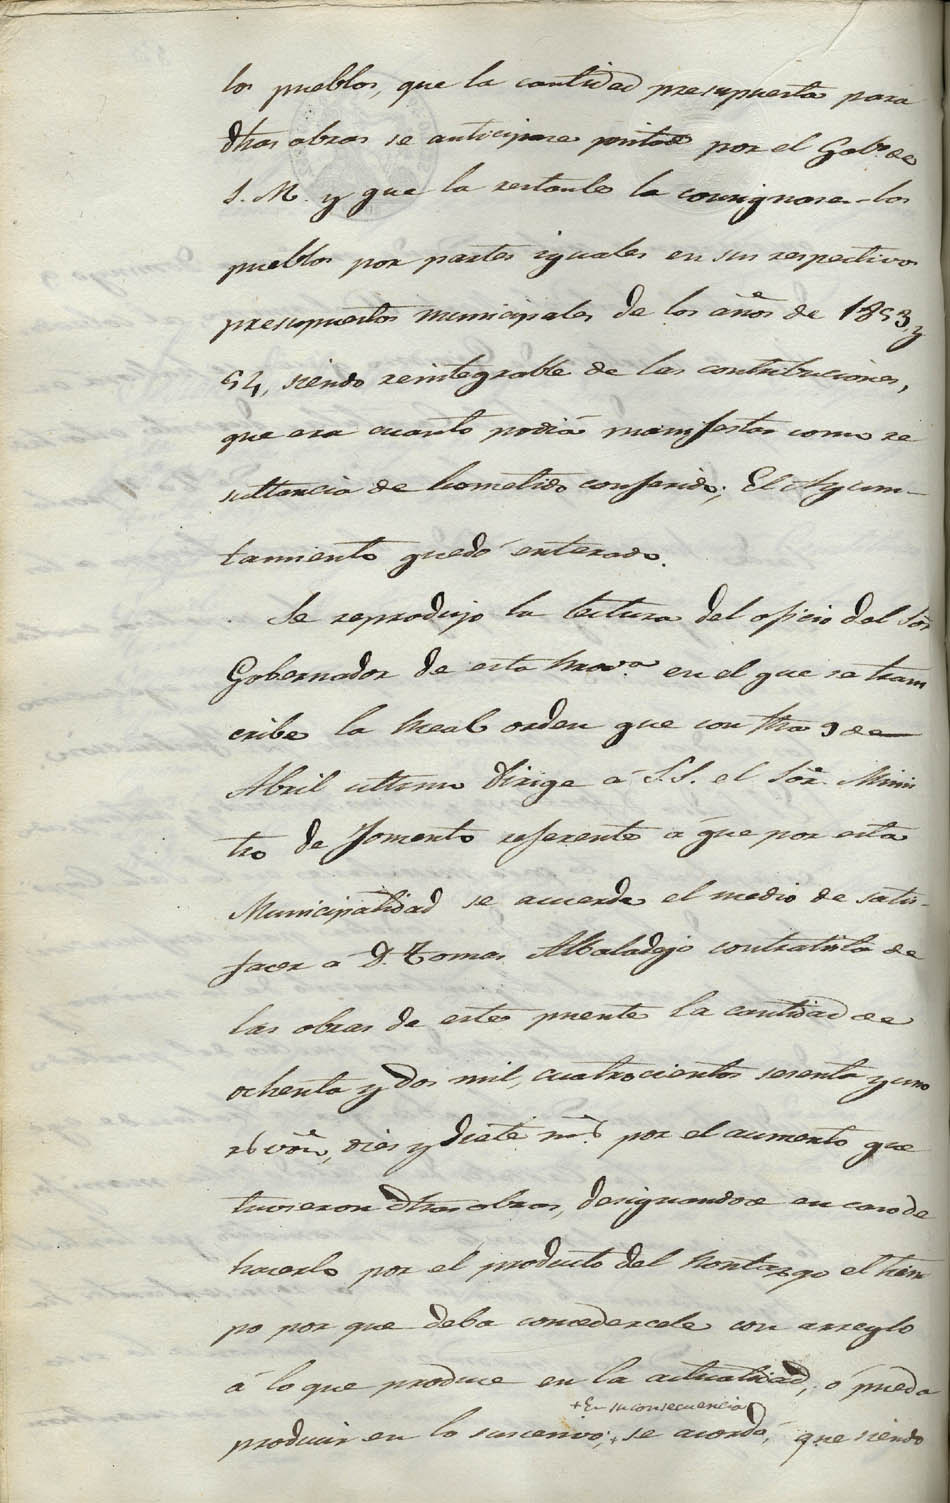 los pueblos, que la cantidad presupuesta para
dhas obras se anticipase por el Gobno. de
S. M. y que la restante la consignasen los
pueblos por partes iguales en sus respectivos
presupuestos municipales de los años de 1853, y
54, siendo reintegrable de las contribuciones,
que era cuanto podia manifestar como re
sultancia de lcometido conferido; El Ayun-
tamiento quedó enterado.
Se reprodujo la lectura del oficio del Sor.
Gobernador de esta Prova. en el que se trans
cribe la Real orden que con fha 9 de
Abril ultimo dirige á S.S. el Sor. Minis
tro de fomento referente á que por esta
Municipalidad se acuerde el medio de satis-
facer a D. Tomas Albaladejo contratista de
las obras de este puente la cantidad de
ochenta y dos mil, cuatrocientos sesenta y uno
rs. von, dies y siete ms. por el aumento que
tuvieron dhas obras, designandose en caso de
hacerlo por el producto del Pontazgo el tiem
po por que deba concedercele con arreglo
á lo que produce en la actualidad, ó pueda
+ En su consecuencia
producir en lo succesivo; + se acordó, que siendo